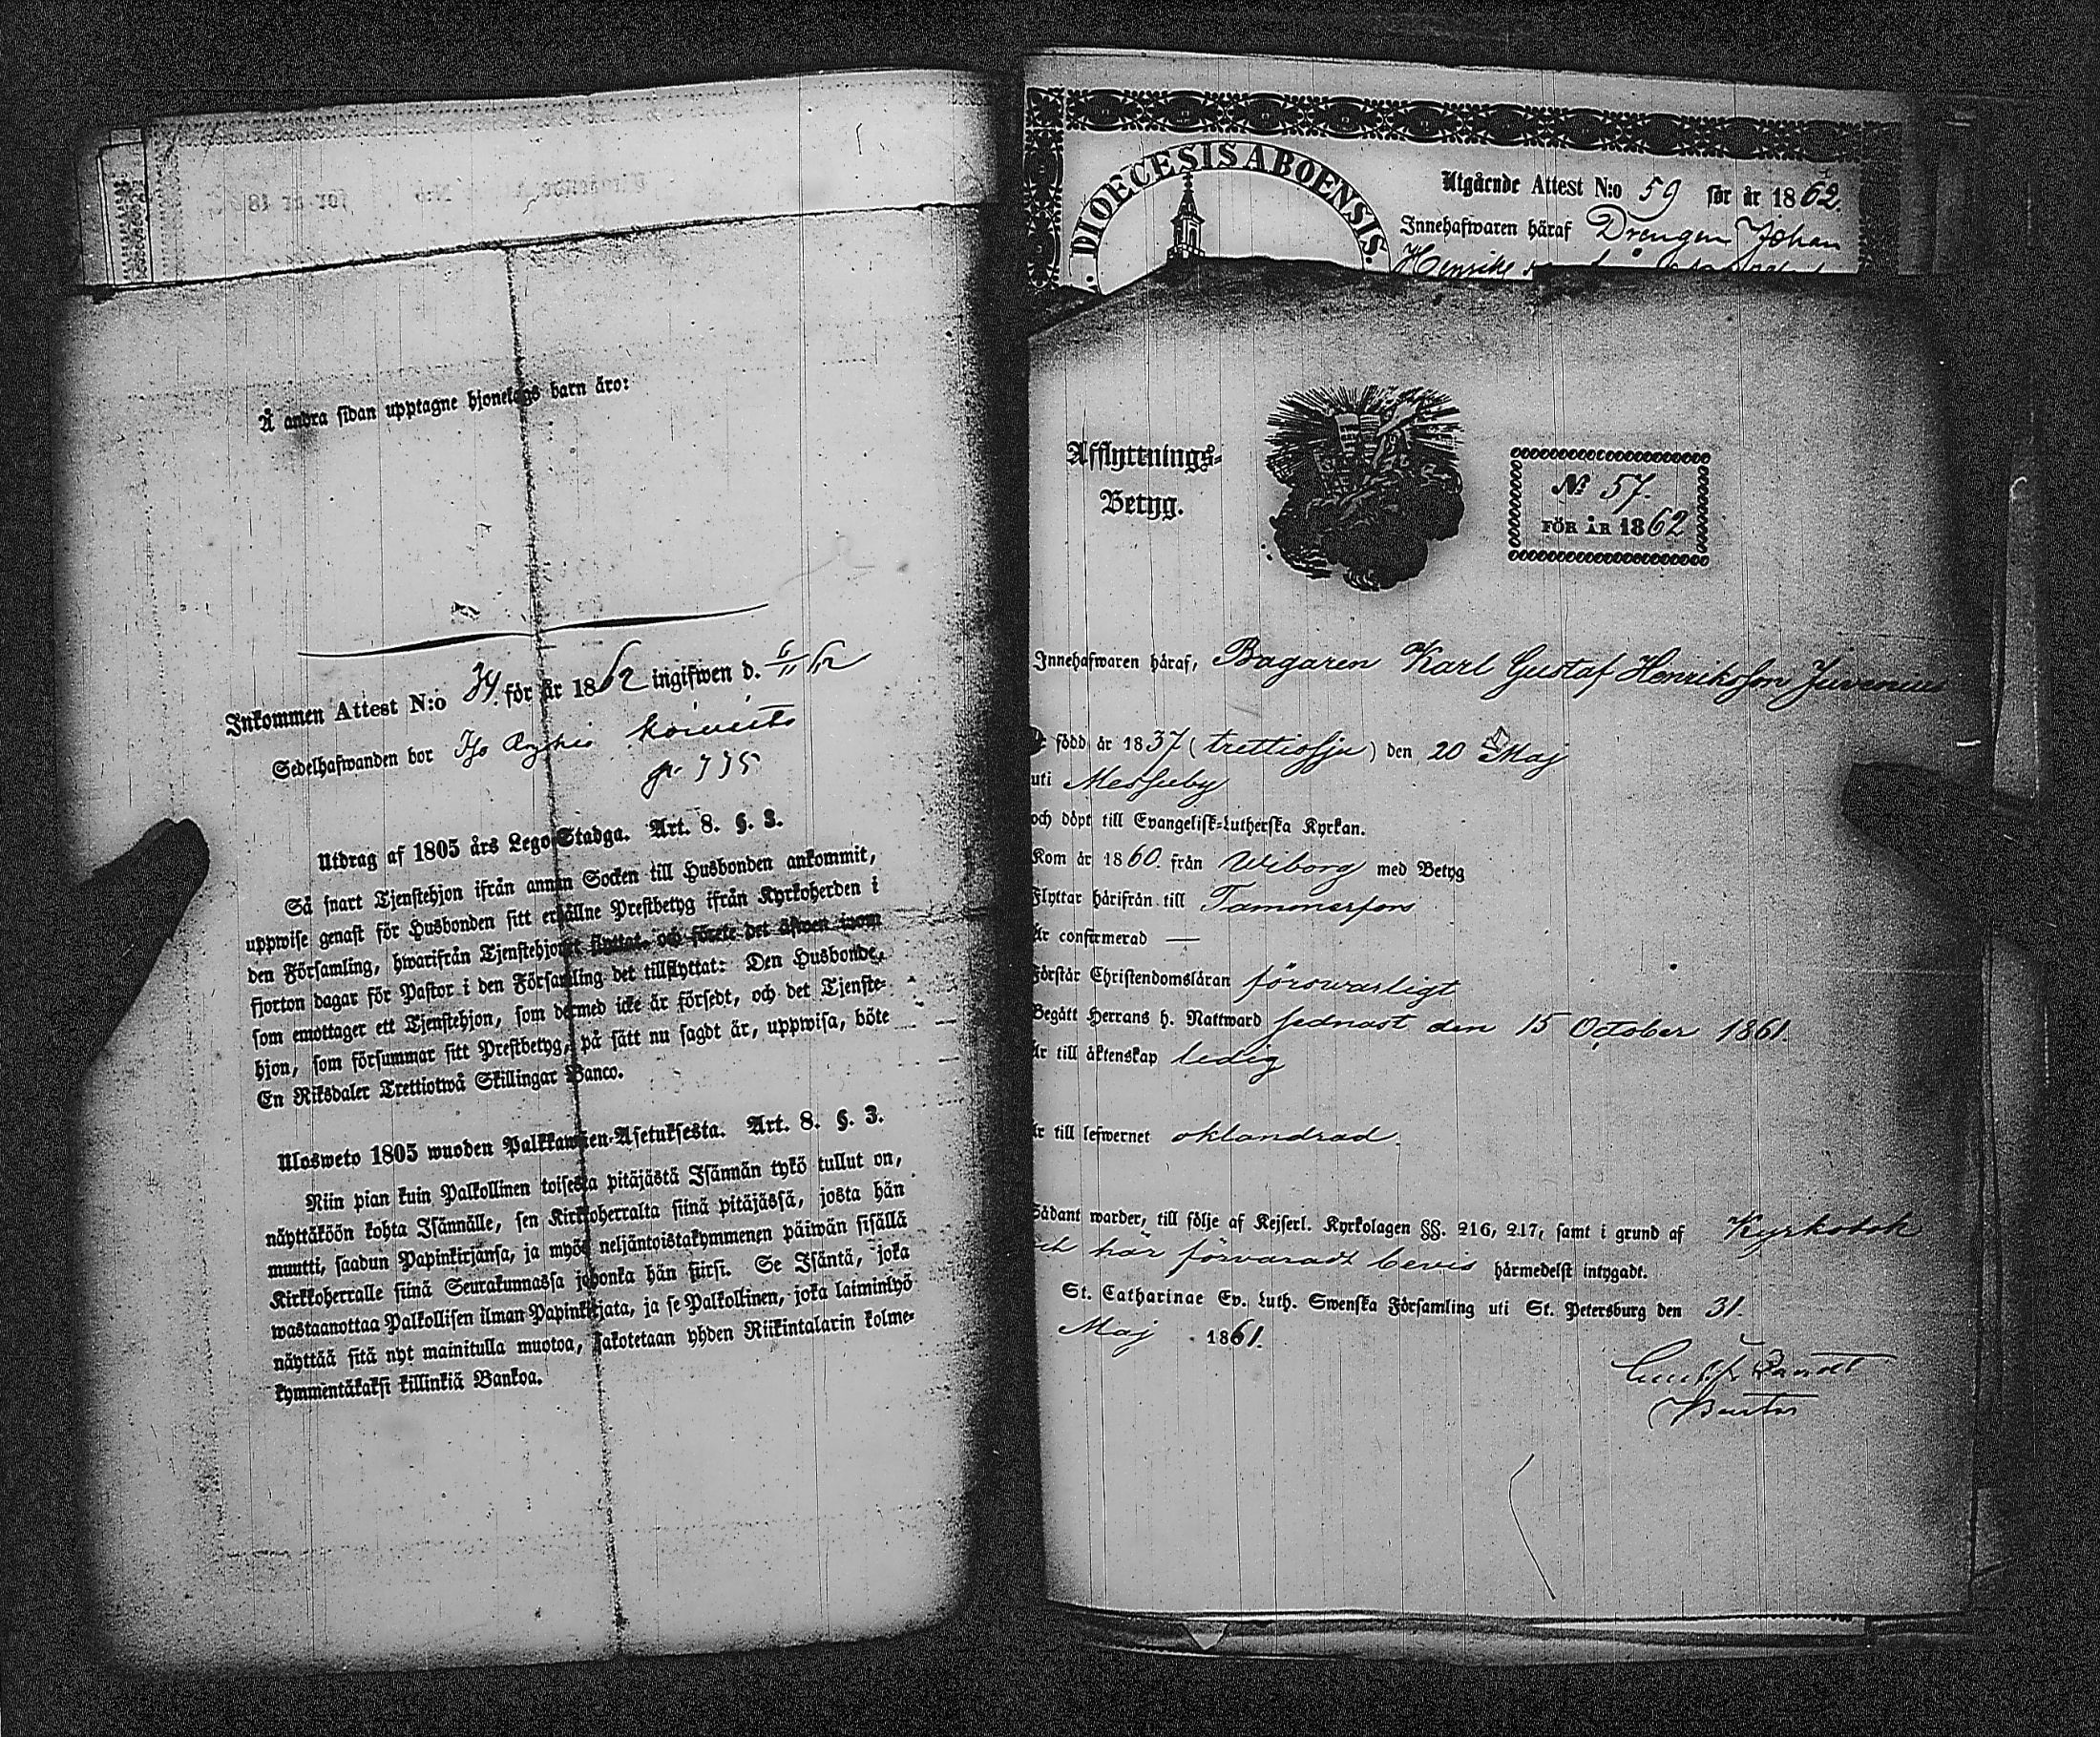 Å andra sidan upptagne hjonelags barn äro:
Inkommen Attest N:o 34. för år 1862 ingifwen d. 6/11 62
Sedelhafwanden bor Iso
p. 735
Utdrag af 1805 års Lego-Stadga. Art. 8. §. 3.
Så snart Tjenstehjon ifrån annan Socken till Husbonden ankommit,
uppwise genast för Husbonden sitt erhållne Prestbetyg ifrån Kyrkoherden i
den Församling, hwarifrån Tjenstehjonet flyttat, och förete det äfwen inom
fjorton dagar för Pastor i den Församling det tillflyttat: Den Husbonde,
som emottager ett Tjenstehjon, som dermed icke är försedt, och det Tjenste-
hjon, som försummar sitt Prestbetyg, på sätt nu sagdt är, uppwisa, böte
En Riksdaler Trettiotwå Skillingar Banco.
Ulosweto 1805 wuoden Palkkawäen-Asetuksesta. Art. 8. §. 3.
Niin pian kuin Palkollinen toisesta pitäjästä Isännän tykö tullut on,
näyttäköön kohta Isännälle, sen Kirkkoherralta siinä pitäjässä, josta hän
muutti, saadun Papinkirjansa, ja myös neljäntoistakymmenen päiwän sisällä
Kirkkoherralle siinä Seurakunnassa johonka hän siirsi. Se Isäntä, joka
wastaanottaa Palkollisen ilman Papinkirjata, ja se Palkollinen, joka laiminlyö
näyttää sitä nyt mainitulla muotoa, sakotetaan yhden Riikintalarin kolme-
kymmentäkaksi killinkiä Bankoa.
DIOECESIS ABOENSIS.
Utgående Attest N:o 59 för år 1862.
Innehafwaren häraf Drengen Johan
Henrik
Afflyttnings-
Betyg.
No 57.
FÖR ÅR 1862
Innehafwaren häraf, Bagaren Karl Gustaf Henriksson Juvenius
född år 1837 (trettiosju) den 20 Maj
uti Messuby
och döpt till Evangelisk-Lutherska Kyrkan.
Kom år 1860. från Wiborg med Betyg
Flyttar härifrån till Tammerfors
Är confirmerad —
Förstår Christendomsläran försvarligt
Begått Herrans h. Nattward sednast den 15 October 1861.
Är till äktenskap ledig
Är till lefwernet oklandrad.
Sådant warder, till följe af Kejserl. Kyrkolagen §§. 216, 217, samt i grund af Kyrkobok
och här förvaradt bevis härmedelst intygadt.
St. Catharinae Ev. Luth. Swenska Församling uti St. Petersburg den 31.
Maj 1861.
Pastor